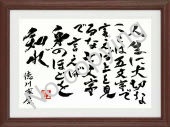 人生に大切な
ことは五文字で
言えば上を見
るな七文字
で言えば
身のほどを
知れ
徳川家康